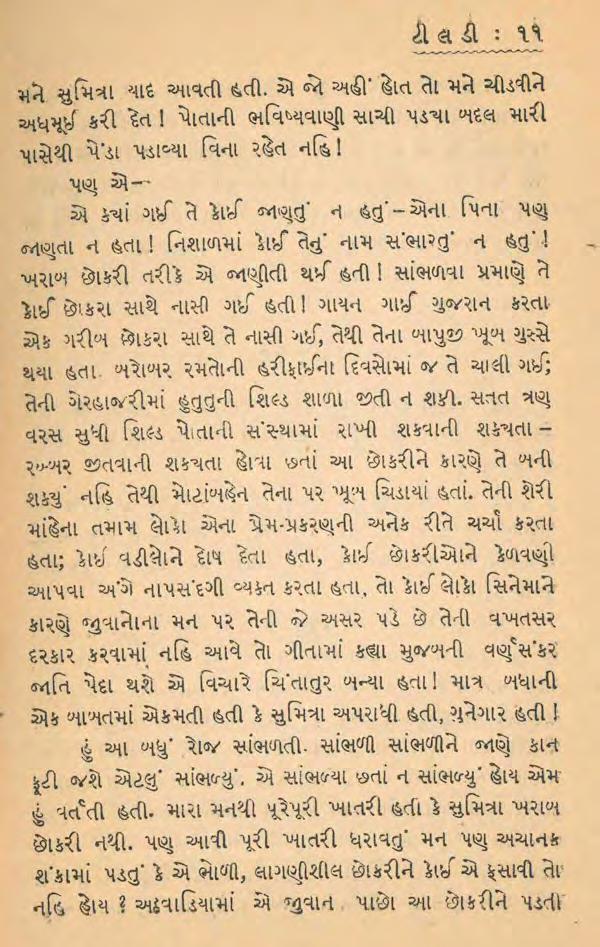 ટીલડી : ૧૧
મને સુમિત્રા યાદ આવતી હતી. એ જો અહીં હોત તો મને ચીડવીને
અધમૂઈ કરી દેત! પોતાની ભવિષ્યવાણી સાચી પડ્યા બદલ મારી
પાસેથી પેંડા પડાવ્યા વિના રહેત નહિ!
પણ એ—
એ ક્યાં ગઈ તે કોઈ જાણતું ન હતું–એના પિતા પણ
જાણતા ન હતા! નિશાળમાં કોઈ તેનું નામ સંભારતું ન હતું!
ખરાબ છોકરી તરીકે એ જાણીતી થઈ હતી! સાંભળવા પ્રમાણે તે
કોઈ છોકરા સાથે નાસી ગઈ હતી! ગાયન ગાઈ ગુજરાન કરતા
એક ગરીબ છોકરા સાથે તે નાસી ગઈ, તેથી તેના બાપુજી ખૂબ ગુસ્સે
થયા હતા. બરોબર રમતોની હરીફાઈના દિવસોમાં જ તે ચાલી ગઈ;
તેની ગેરહાજરીમાં હુતુતુની શિલ્ડ શાળા જીતી ન શકી. સતત ત્રણ
વરસ સુધી શિલ્ડ પોતાની સંસ્થામાં રાખી શકવાની શક્યતા –
રબ્બર જીતવાની શક્યતા હોવા છતાં આ છોકરીને કારણે તે બની
શક્યું નહિ તેથી મોટાંબહેન તેના પર ખૂબ ચિડાયાં હતાં. તેની શેરી
માંહેના તમામ લોકો એના પ્રેમ-પ્રકરણની અનેક રીતે ચર્ચા કરતા
હતા; કોઈ વડીલોને દોષ દેતા હતા, કોઈ છોકરીઓને કેળવણી
આપવા અંગે નાપસંદગી વ્યક્ત કરતા હતા, તો કોઈ લોકો સિનેમાને
કારણે જુવાનોના મન પર તેની જે અસર પડે છે તેની વખતસર
દરકાર કરવામાં નહિ આવે તો ગીતામાં કહ્યા મુજબની વર્ણસંકર
જાતિ પેદા થશે એ વિચારે ચિંતાતુર બન્યા હતા! માત્ર બધાની
એક બાબતમાં એકમતી હતી કે સુમિત્રા અપરાધી હતી, ગુનેગાર હતી!
હું આ બધું રોજ સાંભળતી. સાંભળી સાંભળીને જાણે કાન
ફૂટી જશે એટલું સાંભળ્યું. એ સાંભળ્યા છતાં ન સાંભળ્યું હોય એમ
હું વર્તતી હતી. મારા મનથી પૂરેપૂરી ખાતરી હતી કે સુમિત્રા ખરાબ
છોકરી નથી. પણ આવી પૂરી ખાતરી ધરાવતું મન પણ અચાનક
શંકામાં પડતું કે એ ભોળી, લાગણીશીલ છોકરીને કોઈ એ ફસાવી તો
નહિ હોય? અઠવાડિયામાં એ જુવાન પાછો આ છોકરીને પડતી